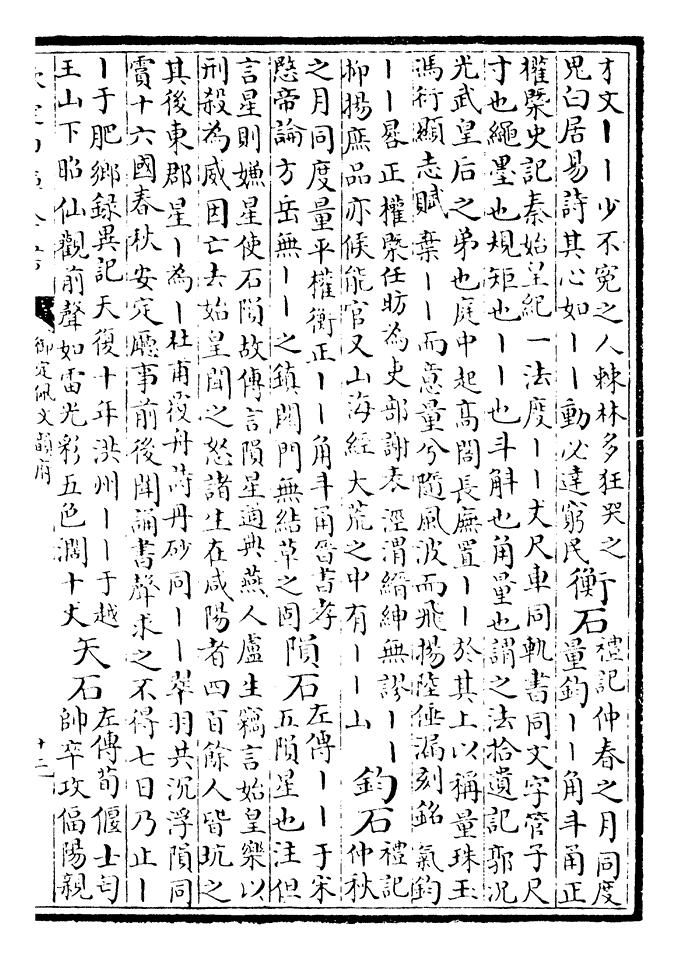 才文丨丨少不冤之人棘林多狂哭之
鬼白居易詩其心如丨丨動必達窮民
衡石
禮記仲春之月同度
量鈞丨丨角斗甬正
權槩史記秦始皇紀一法度丨丨丈尺車同軌書同文字管子尺
寸也繩墨也規矩也丨丨也斗斛也角量也謂之法拾遺記郭況
光武皇后之弟也庭中起高閣長廡置丨丨於其上以稱量珠玉
馮衍顯志賦棄丨丨而意量兮隨風波而飛揚陸倕漏刻銘氣鈞
丨丨晷正權槩任昉為吏部謝表涇渭縉紳無謬丨丨
抑揚庶品亦候能官又山海經大荒之中有丨丨山
鈞石
禮記
仲秋
之月同度量平權衡正丨丨角斗甬晉書孝
愍帝論方岳無丨丨之鎮關門無結草之固
隕石
左傳丨丨于宋
五隕星也注但
言星則嫌星使石隕故傳言隕星適典燕人盧生竊言始皇樂以
刑殺為威因亡去始皇聞之怒諸生在咸陽者四百餘人皆坑之
其後東郡星丨為丨杜甫覆舟詩丹砂同丨丨翠羽共沉浮隕同
霣十六國春秋安定廳事前後聞誦書聲求之不得七日乃止丨
丨于肥鄉錄異記天復十年洪州丨丨于越
王山下昭仙觀前聲如雷光彩五色濶十丈
矢石
左傳荀偃士匄
帥卒攻偪陽親
御定佩文韻府
十二